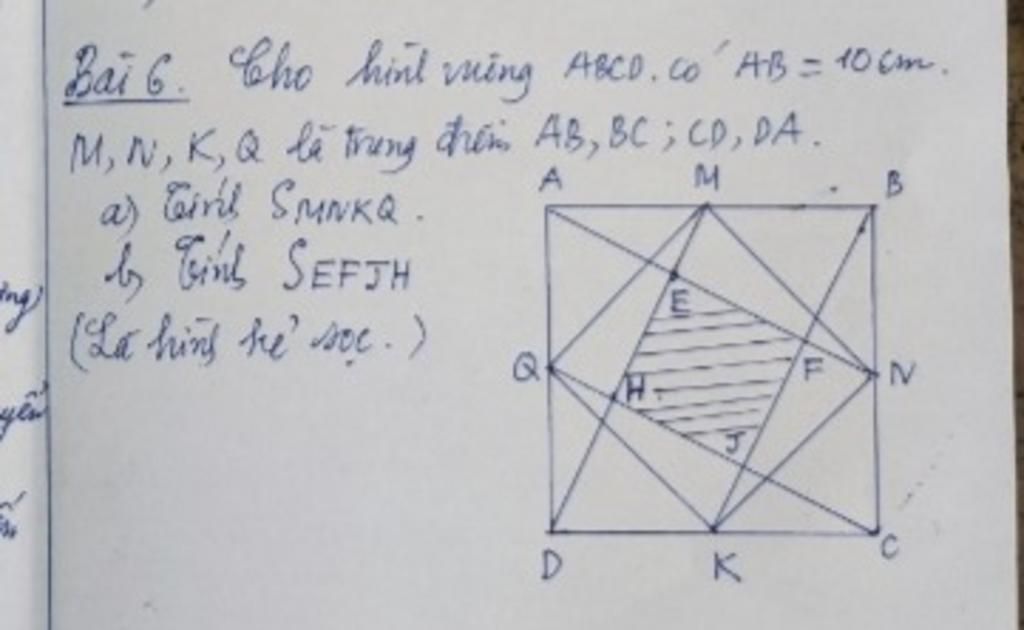 Bài 6. Cho hình vuông ABCD. có AB = 10 cm.
M, N, K, Q là trung điểm AB, BC ; CD, DA.
a) Tính SMNKQ.
b) Tính SEFJH
(Là hình kẻ sọc.)
A M B
E
Q H F N
J
D K C